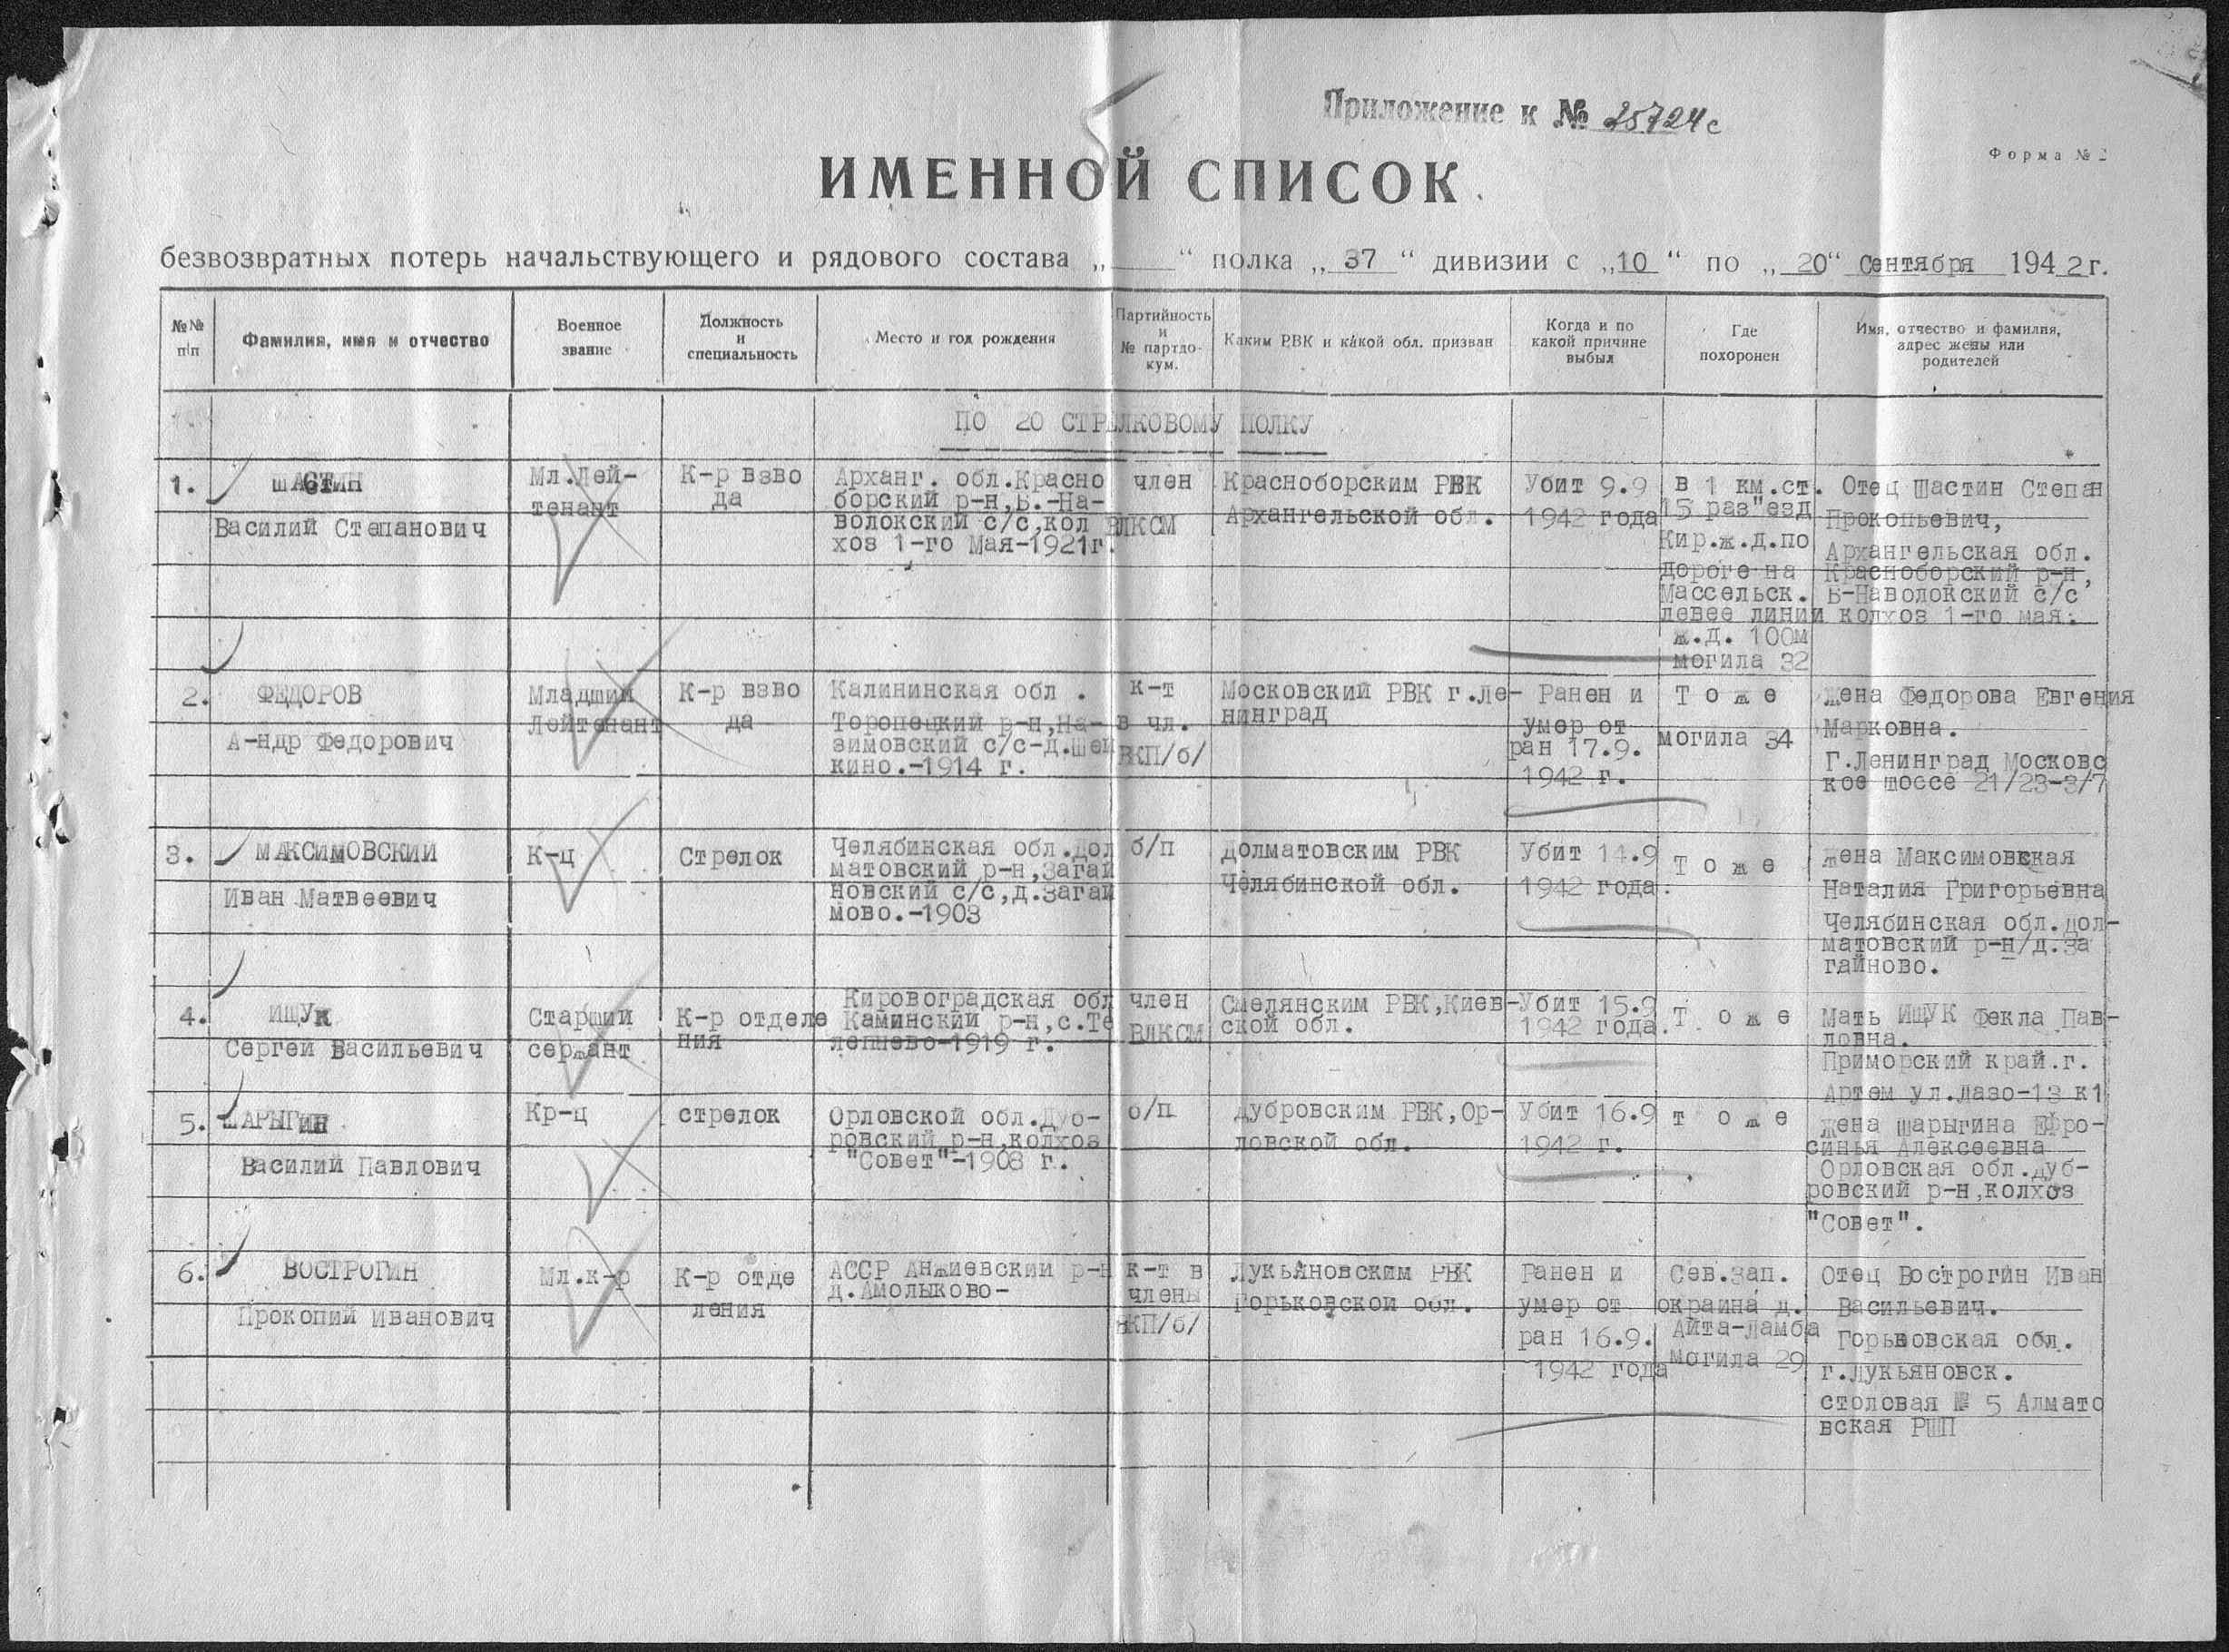 Приложение к № 25724с
Форма № 2
ИМЕННОЙ СПИСОК
безвозвратных потерь начальствующего и рядового состава „ “ полка „ 37 “ дивизии с „10 “ по „ 20“ Сентября 1942г.
№№ п/п
Фамилия, имя и отчество
Военное
звание
Должность
и
специальность
Место и год рождения
Партийность
и
№ партдо-
кум.
Каким РВК и какой обл. призван
Когда и по
какой причине
выбыл
Где
похоронен
Имя, отчество и фамилия,
адрес жены или
родителей
ПО 20 СТРЕЛКОВОМУ ПОЛКУ
1.
ШАСТИН
Василий Степанович
Мл.Лей-
тенант
К-р взво
да
Арханг. обл.Красно
борский р-н,Б.-На-
волокский с/с,кол
хоз 1-го Мая-1921г.
член
ВЛКСМ
Красноборским РВК
Архангельской обл.
Убит 9.9
1942 года
в 1 км.ст.
15 раз"езд
Кир.ж.д.по
дороге на
Массельск.
левее линии
ж.д. 100м
могила 32
Отец Шастин Степан
Прокопьевич,
Архангельская обл.
Красноборский р-н,
Б-Наволокский с/с
колхоз 1-го мая.
2.
ФЕДОРОВ
А-ндр Федорович
Младший
Лейтенант
К-р взво
да
Калининская обл .
Торопецкий р-н,На-
зимовский с/с-д.шей
кино.-1914 г.
к-т
в чл.
ВКП/б/
Московский РВК г.Ле-
нинград
Ранен и
умер от
ран 17.9.
1942 г.
Т о ж е
могила 34
жена Федорова Евгения
Марковна.
Г.Ленинград Московс
кое шоссе 21/23-3/7
3.
МАКСИМОВСКИЙ
Иван Матвеевич
К-ц
Стрелок
Челябинская обл.Дол
матовский р-н,Загай
новский с/с,д.Загай
мово.-1903
б/п
Долматовским РВК
Челябинской обл.
Убит 14.9
1942 года.
Т о ж е
жена Максимовская
Наталия Григорьевна
Челябинская обл.Дол-
матовский р-н/д.За
гайново.
4.
ИЩУК
Сергей Васильевич
Старший
сержант
К-р отделе
ния
Кировоградская обл
Каминский р-н,с.Те
лепнево-1919 г.
член
ВЛКСМ
Смелянским РВК,Киев-
ской обл.
Убит 15.9
1942 года.
Т о ж е
Мать ИЩУК Фекла Пав-
ловна.
Приморский край.г.
Артем ул.Лазо-13 к1
5.
ШАРЫГИН
Василий Павлович
Кр-ц
стрелок
Орловской обл.Дуб-
ровский р-н,колхоз
"Совет"-1908 г.
б/п
Дубровским РВК,Ор-
ловской обл.
Убит 16.9
1942 г.
т о ж е
жена Шарыгина Ефро-
синья Алексеевна
Орловская обл.Дуб-
ровский р-н,колхоз
"Совет".
6.
ВОСТРОГИН
Прокопий Иванович
Мл.к-р
К-р отде
ления
АССР Анжиевский р-н
д.Амолыково-
к-т в
члены
ВКП/б/
Лукьяновским РВК
Горьковской обл.
Ранен и
умер от
ран 16.9.
1942 года
Сев.зап.
окраина д.
Айта-Ламба
могила 29
Отец Вострогин Иван
Васильевич.
Горьковская обл.
г.Лукьяновск.
столовая № 5 Алмато
вская РШП